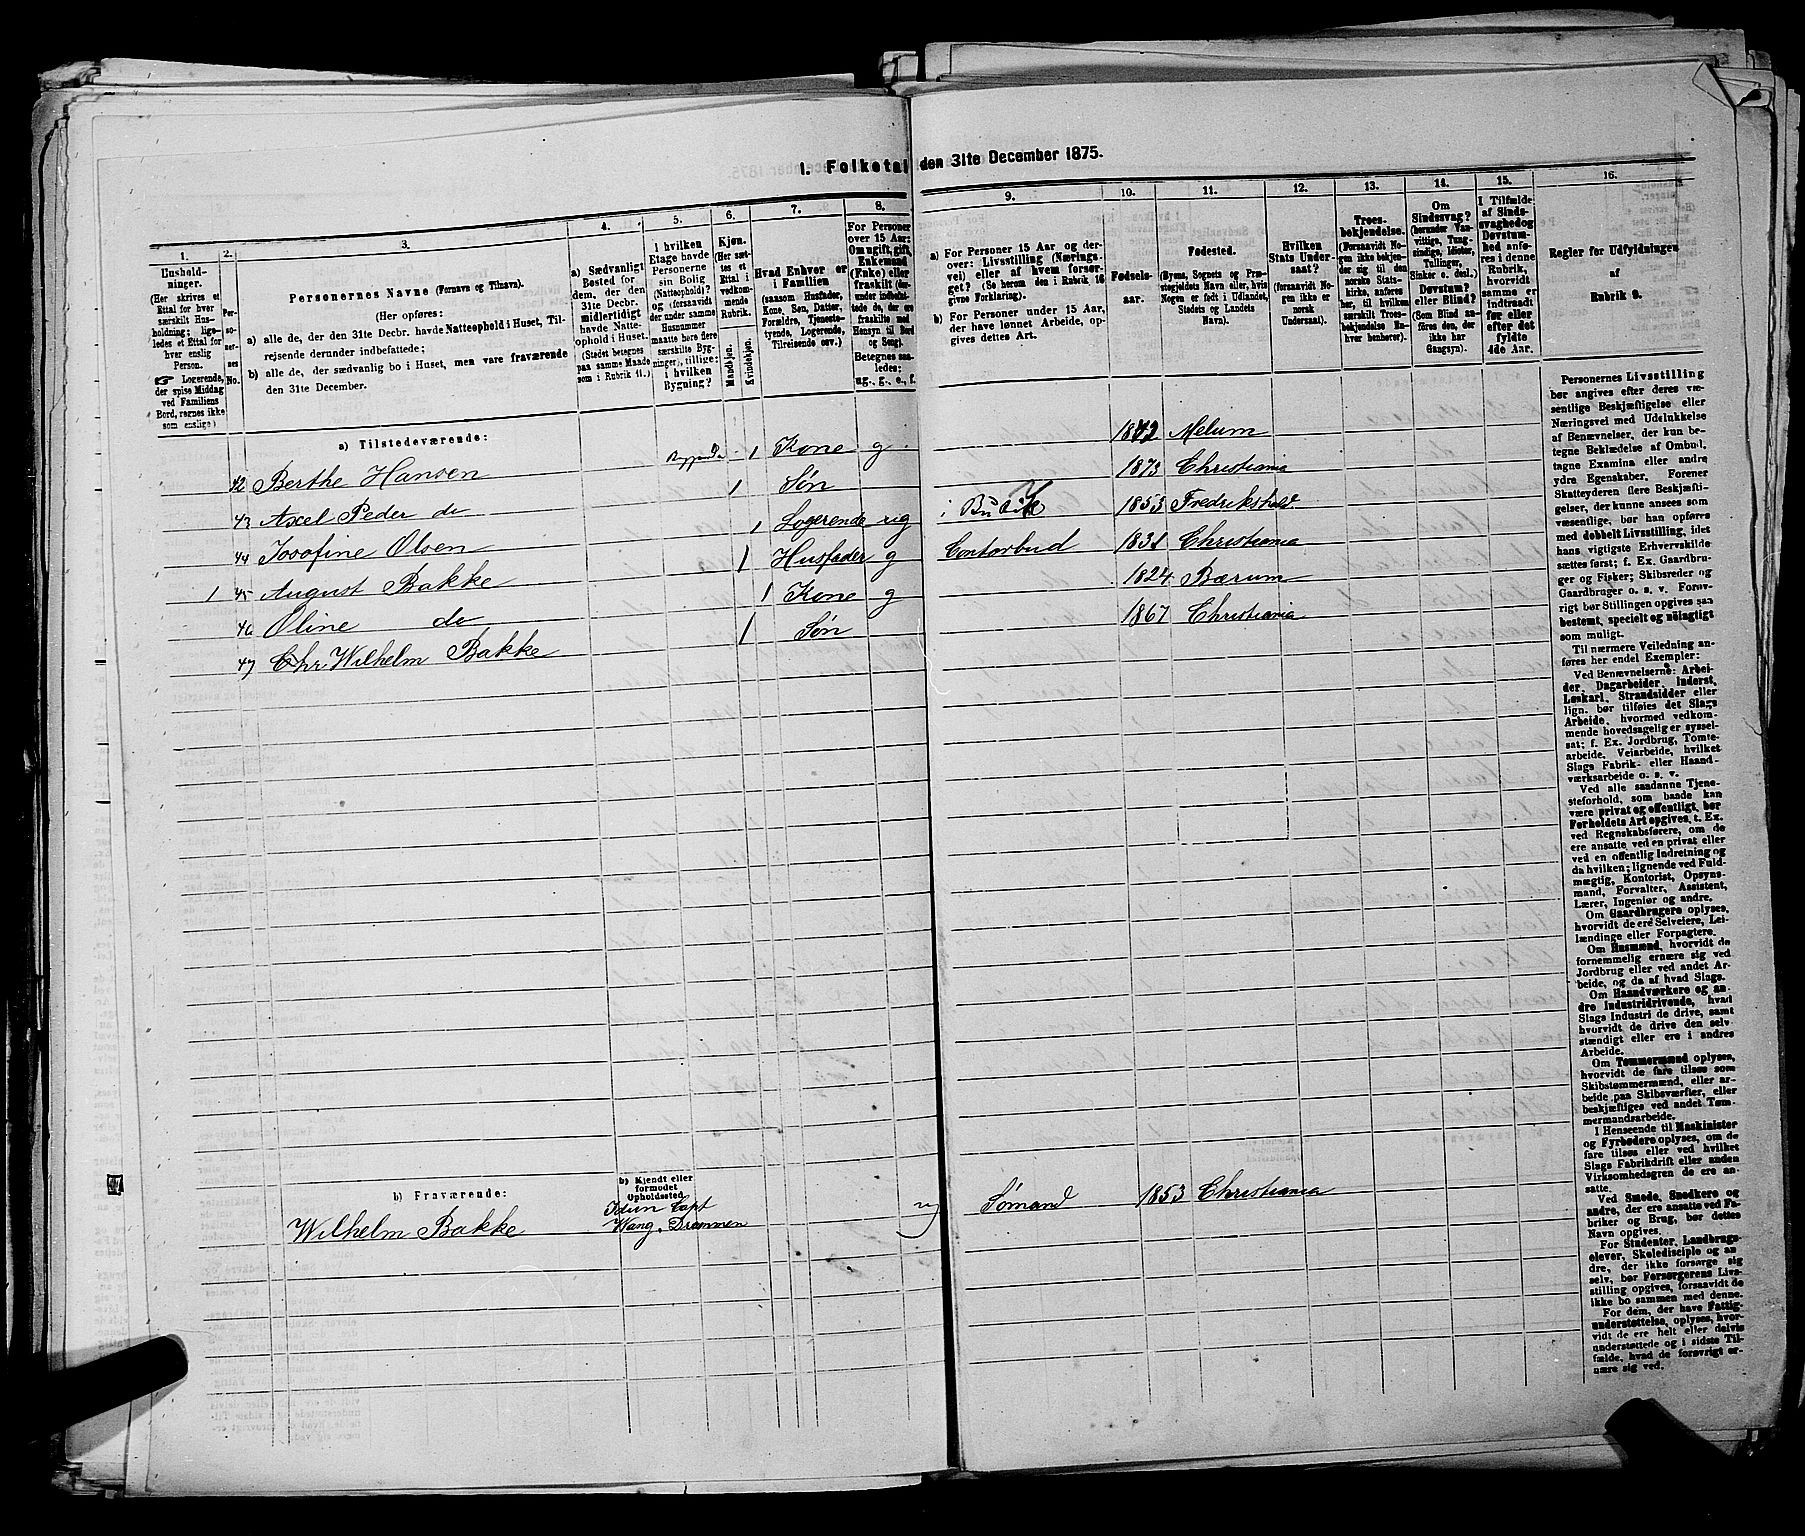 1. Folketal den 31te December 1875.
1.
2.
3.
4.
5.
6.
7.
8.
9.
10.
11.
12.
13.
14.
15.
16.
Husholdninger.
(Her skrives et Ettal for hver særskilt Husholdning; ligeledes et Ettal for hver enslig Person.
☞ Logerende, der spise Middag ved Familiens Bord, regnes ikke som enslige)
Personernes No.
Personernes Navne (Fornavn og Tilnavn).
(Her opføres:
a) alle de, der den 31te Decbr. havde Natteophold i Huset, Tilrejsende derunder indbefattede;
b) alle de, der sædvanlig bo i Huset, men vare fraværende den 31te December.
a) Sædvanligt Bosted for dem, der den 31te Decbr. midlertidigt havde Natteophold i Huset. (Stedet betegnes paa samme Maade som i Rubrik 11.)
I hvilken Etage havde Personerne sin Bolig (Natteophold)? og (forsaavidt der under samme Husnummer maatte høre flere særskilte Bygninger), tillige: i hvilken Bygning?
Kjøn. (Her sættes et Ettal i vedkommende Rubrik.
Mandkjøn.
Kvindekjøn.
Hvad Enhver er i Familien
(saasom Husfader, Kone, Søn, Datter, Forældre, Tjenestetyende, Logerende, Tilreisende osv.)
For Personer over 15 Aar: Om ugift, gift, Enkemand (Enke) eller fraskilt
Betegnes saaledes: ug., g., e., f.
a) For Personer 15 Aar og derover: Livsstilling (Næringsvei) eller af hvem forsørget? (Se herom den i Rubrik 16 givne Forklaring).
b) For Personer under 15 Aar, der have lønnet Arbeide, opgives dettes Art.
Fødselsaar.
Fødested.
(Byens, Sognets og Præstegjeldets Navn eller, hvis Nogen er født i Udlandet, Stedets og Landets Navn).
Hvilken Stats Undersaat?
(Forsaavidt Nogen ikke er norsk Undersaat).
Troesbekjendelse.
(Forsaavidt Nogen ikke bekjender sig til den norske Statskirke, anføres her, til hvilken særskilt Troesbekjendelse Enhver henhører).
Om Sindssvag? (herunder Vanvittige, Tungsindige, Idioter, Tullinger, Sinker o. desl.) Døvstum? eller Blind? (Som Blind anføres den, der ikke har Gangsyn).
I Tilfælde af Sindssvaghed og Døvstumhed anføres i denne Rubrik, hvorvidt samme er indtraadt før eller efter det fyldte 4de Aar.
Regler for Udfyldningen
af
Rubrik 9.
a) Tilstedeværende:
42 Berthe Hansen 1 Kone g 1842 Melum
43 Axel Peder do 1 Søn 1873 Christiania
44 Josofine Olsen 1 Logerende ug i Butik 1853 Fredrikshald
1 45 August Bakke 1 Husfader g Contorbud 1831 Christiania
46 Oline do 1 Kone g 1824 Bærum
47 Chr Wilhelm Bakke 1 Søn 1867 Christiania
b) Fraværende:
b) Kjendt eller formodet Opholdssted.
Wilhelm Bakke Idun Capt Wang, Drammen ug Sømand 1853 Christiania
Personernes Livsstilling
bør angives efter deres væ-
sentlige Beskjæftigelse eller
Næringsvei med Udelukkelse
af Benævnelser, der kun be-
tegne Beklædelse af Ombud,
tagne Examina eller andre
ydre Egenskaber. Forener
Skatteyderen flere Beskjæfti-
gelser, der kunne ansees som
væsentlige, bør han opføres
med dobbelt Livsstilling, idet
hans vigtigste Erhvervskilde
sættes først; f. Ex. Gaardbru-
ger og Fisker; Skibsreder og
Gaardbruger o. s. v. Forøv-
rigt bør Stillingen opgives saa
bestemt, specielt og nøiagtigt
som muligt.
Til nærmere Veiledning an-
føres her endel Exempler:
Ved Benævnelserne: Arbei-
der, Dagarbeider, Inderst,
Løskarl, Strandsidder eller
lign. bør tilføies det Slags
Arbeide, hvormed vedkom-
mende hovedsagelig er syssel-
sat; f. Ex. Jordbrug, Tomte-
arbeide, Veiarbeide, hvilket
Slags Fabrik- eller Haand-
værksarbeide o. s. v.
Ved alle saadanne Tjene-
steforhold, som baade kan
være privat og offentligt, bør
Forholdets Art opgives, t. Ex.
ved Regnskabsførere, om de
ere ansatte ved en privat eller
ved en offentlig Indretning og
da hvilken; lignende ved Fuld-
mægtig, Kontorist, Opsyns-
mand, Forvalter, Assistent,
Lærer, Ingeniør og andre.
Om Gaardbrugere oplyses,
hvorvidt de ere Selveiere, Lei-
lændinge eller Forpagtere.
Om Husmænd, hvorvidt de
fornemmelig ernære sig ved
Jordbrug eller ved andet Ar-
beide, og da af hvad Slags.
Om Haandværkere og an-
dre Industridrivende, hvad
Slags Industri de drive, samt
hvorvidt de drive den selv-
stændigt eller ere i andres
Arbeide.
Om Tømmermænd oplyses,
hvorvidt de fare tilsøs som
Skibstømmermænd, eller ar-
beide paa Skibsværfter, eller
beskjæftiges ved andet Tøm-
mermandsarbeide.
I Henseende til Maskinister
og Fyrbødere oplyses, om de
fare tilsøs eller ved hvilket
Slags Fabrikdrift eller anden
Virksomhedsgren de ere an-
satte.
Ved Smede, Snedkere og
andre, der ere ansatte ved Fa-
briker og Brug, bør dettes
Navn opgives.
For Studenter, Landbrugs-
elever, Skoledisciple og an-
dre, der ikke forsørge sig
selv, bør Forsørgerens Livs-
stilling opgives, forsaavidt de
ikke bo sammen med denne.
For dem, der have Fattig-
understøttelse, oplyses, hvor-
vidt de ere helt eller delvis
understøttede og i sidste Til-
fælde, hvad de forøvrigt er-
nære sig ved.